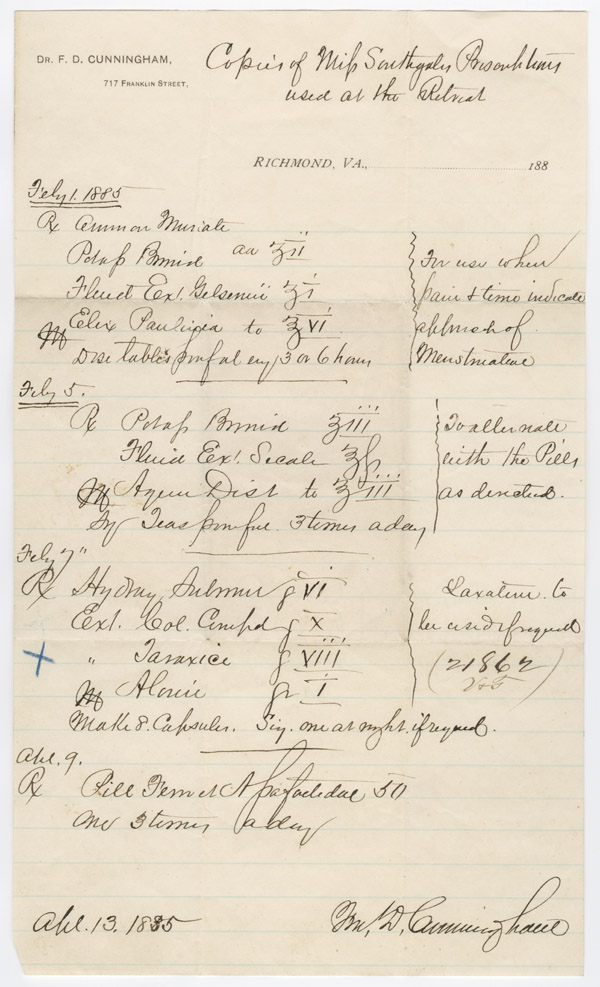 DR. F. D. CUNNINGHAM,
717 FRANKLIN STREET,
Copies of Miss Southgates Prescriptions
used at the Retreat
RICHMOND, VA., 188
Feby 1. 1885
Rx Ammon Muriate
Potass Bromid aa ʒii
Fluid Ext. Gelsemii ʒi
Elix to ʒvi
M
Dose tablespoonful evy 3 or 6 hours
For use when
pain & time indicate
approach of
Menstruation
Feby 5.
Rx Potass Bromid ʒiii
Fluid Ext. Secale
M Aquae Dist to ʒiii
Sig Teaspoonful 3 times a day
To alternate
with the Pills
as directed.
Feby 7"
Rx Hydrarg Submur gr VI
Ext. Col. Compd gr X
" Taraxici gr VIII
M Aloin gr i
Make 8. Capsules. Sig. one at night, if required.
Laxative. to
be used if required
(21862
)
Apl. 9.
Rx Pill Ferri et 50
one 3 times a day
Apl. 13. 1885 Wm. D. Cunningham